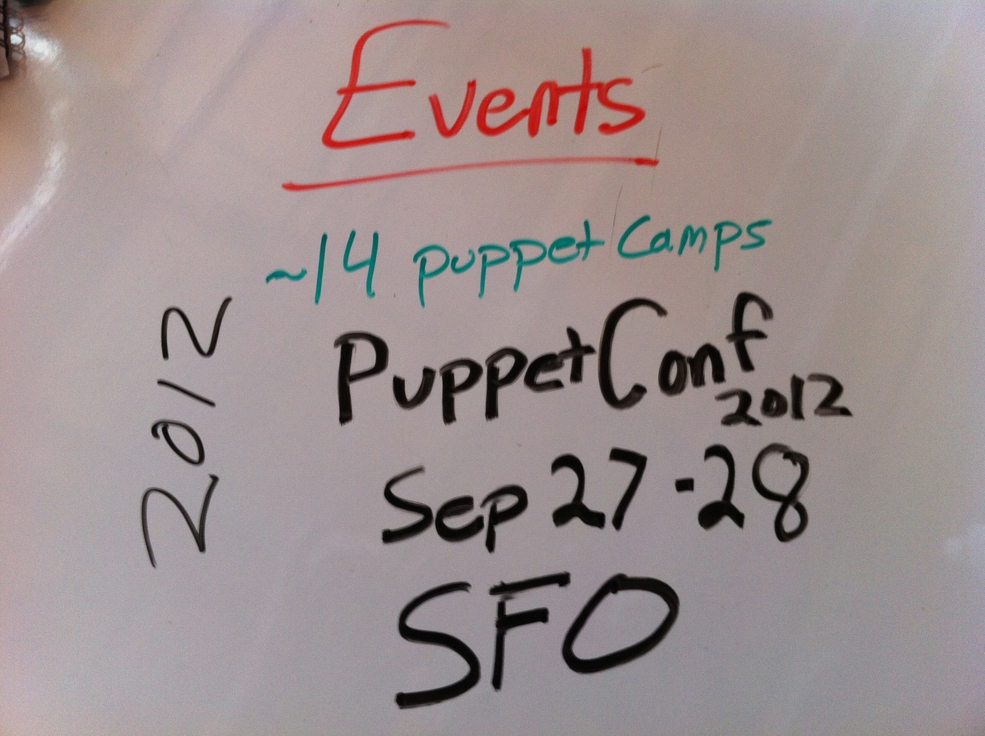 Events
~14 puppet Camps
2012
PuppetConf
2012
Sep 27-28
SFO